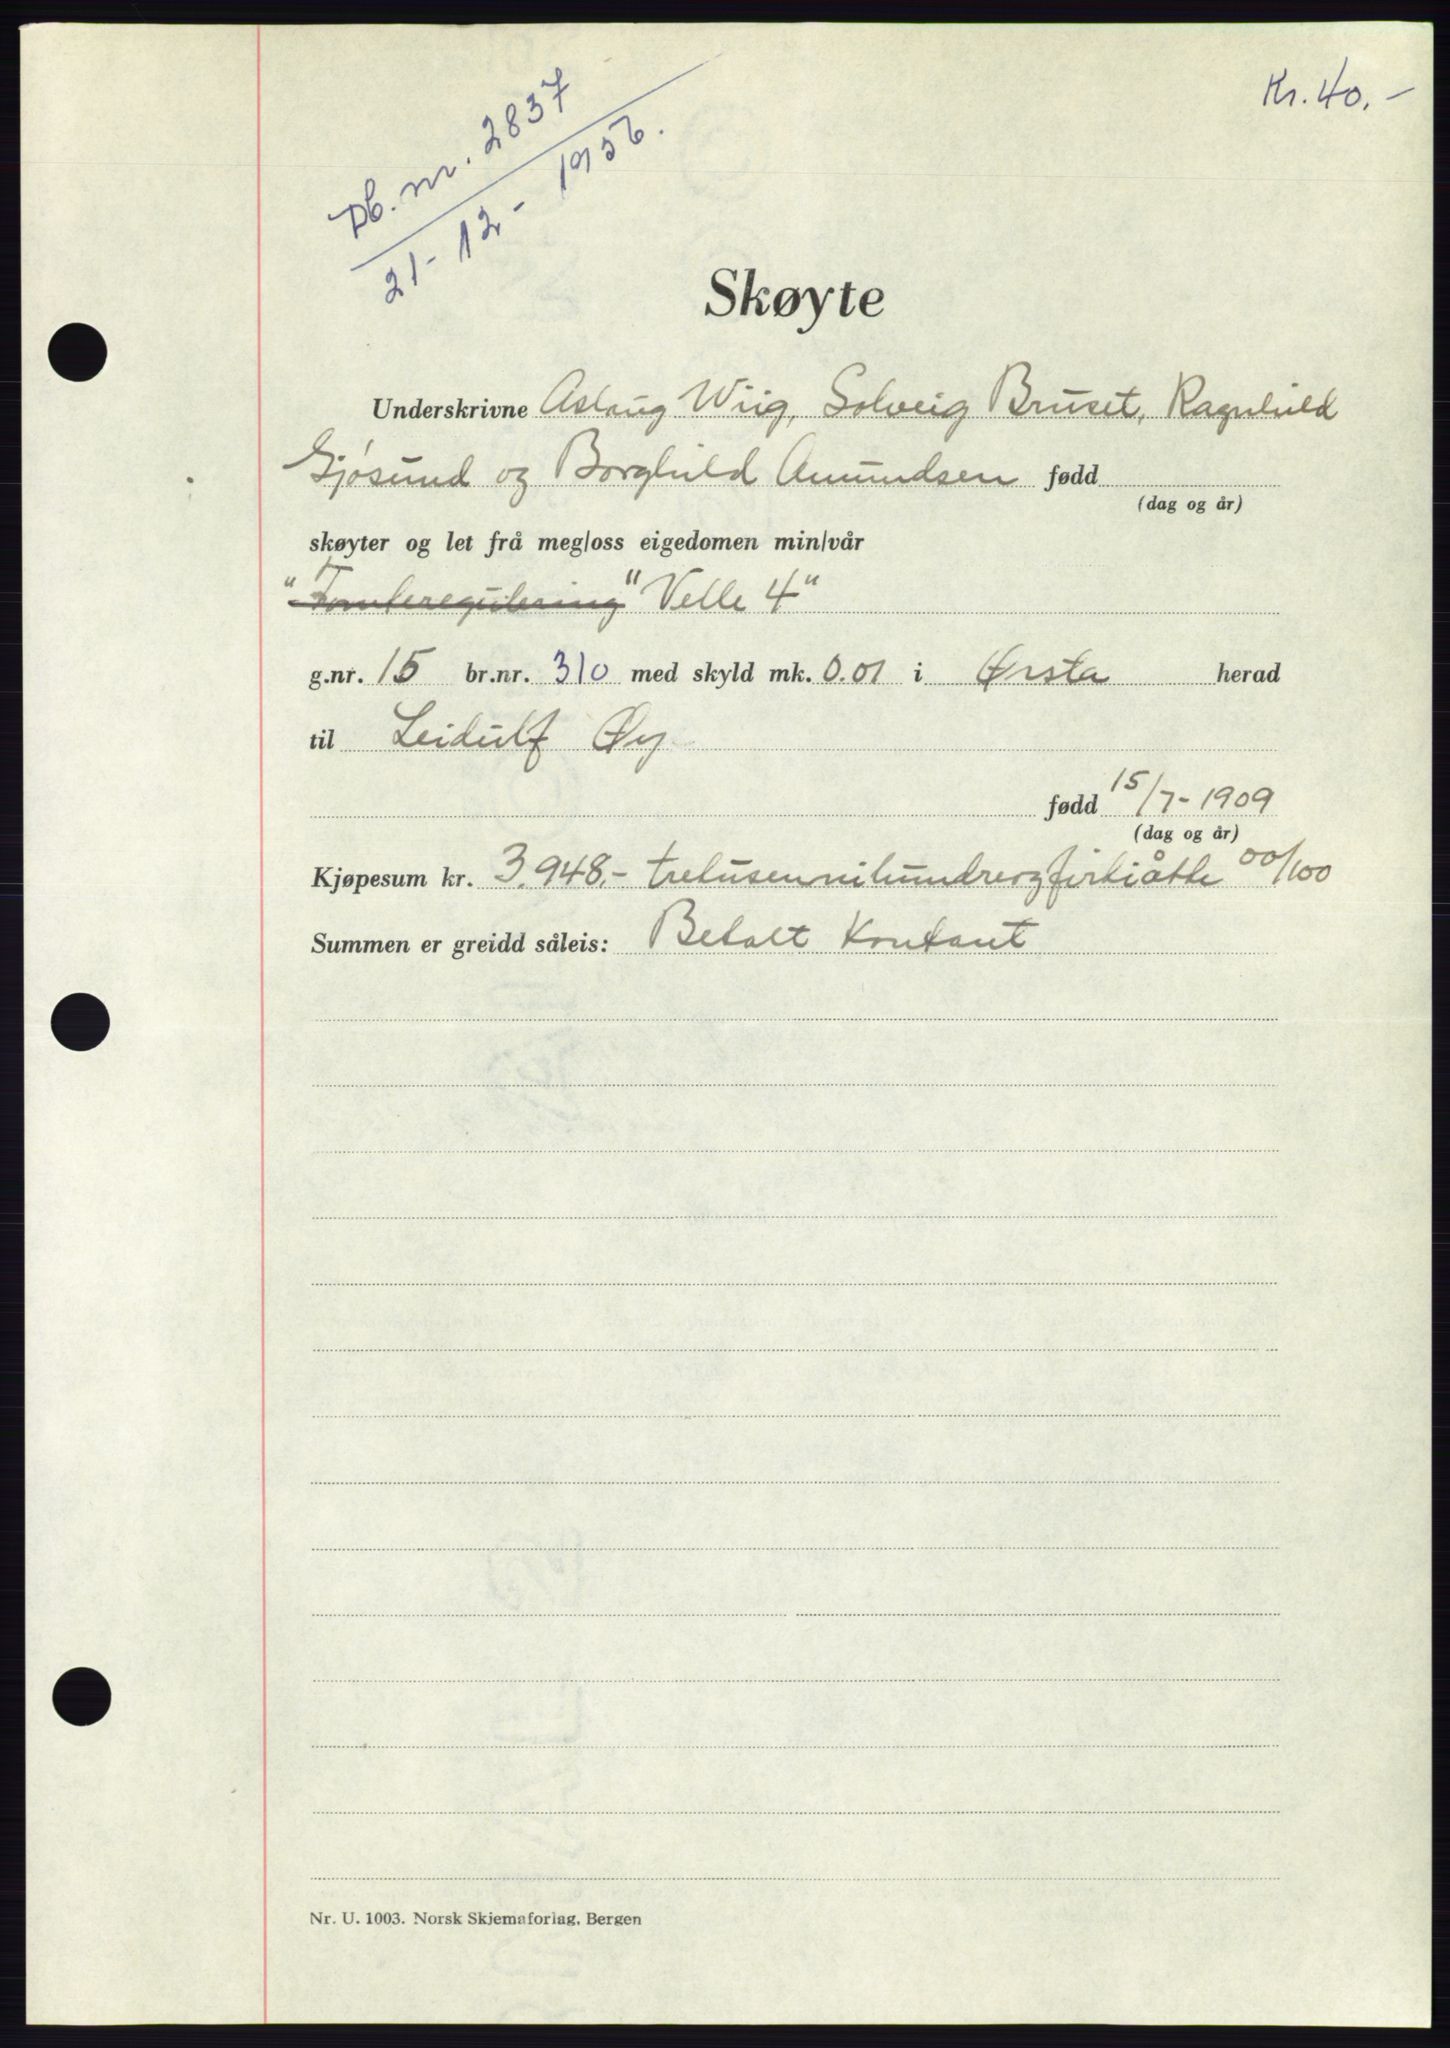 Kr. 40.-
Db. nr. 2837
21-12-1956.
Skøyte
Underskrivne Aslaug Wiig, Solveig Bruset, Ragnhild
Gjøsund og Borghild Amundsen fødd
(dag og år)
skøyter og let frå meg/oss eigedomen min/vår
"Tomteregulering" Velle 4"
g.nr. 15 br.nr. 310 med skyld mk. 0.01 i Ørsta herad
til Leidulf Øy
fødd 15/7-1909
(dag og år)
Kjøpesum kr. 3.948,- tretusennihundreogfirtiåtte 00/100
Summen er greidd såleis: Betalt Kontant
Nr. U. 1003. Norsk Skjemaforlag, Bergen